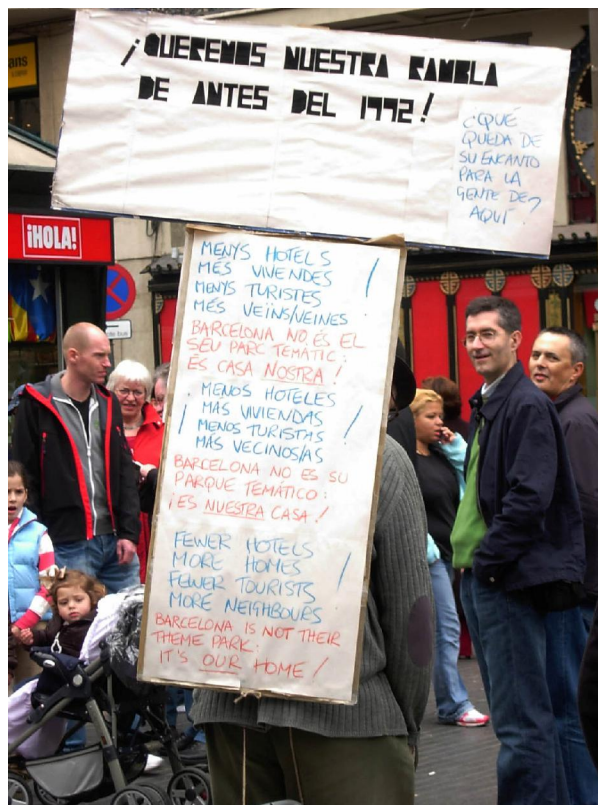 ¡QUEREMOS NUESTRA RAMBLA
DE ANTES DEL 1992!
¿QUÉ
QUEDA DE
SU ENCANTO
PARA LA
GENTE DE
AQUÍ?
ans
¡HOLA!
MENYS HOTELS
MÉS VIVENDES
MENYS TURISTES
MÉS VEÏNS/VEINES!
BARCELONA NO ÉS EL
SEU PARC TEMÀTIC:
ÉS CASA NOSTRA!
¡MENOS HOTELES
MÁS VIVIENDAS
MENOS TURISTAS
MÁS VECINOS/AS!
BARCELONA NO ES SU
PARQUE TEMÁTICO:
¡ES NUESTRA CASA!
FEWER HOTELS
MORE HOMES
FEWER TOURISTS
MORE NEIGHBOURS!
BARCELONA IS NOT THEIR
THEME PARK:
IT'S OUR HOME!